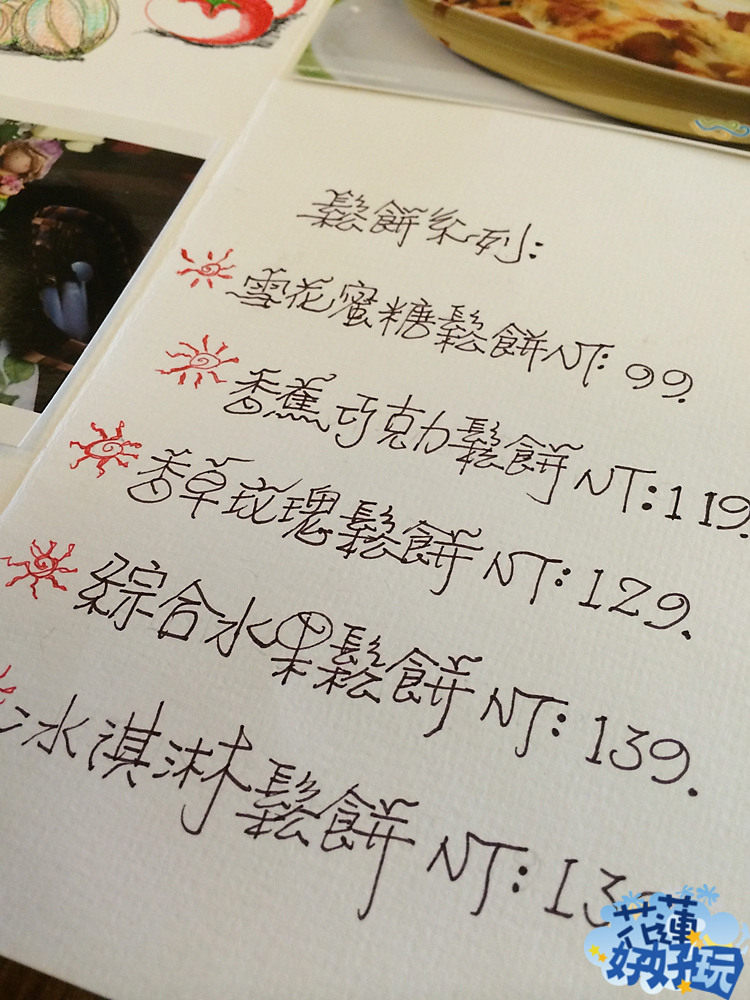 鬆餅系列:
雪花蜜糖鬆餅NT: 99.
香蕉巧克力鬆餅NT:119.
香草玫瑰鬆餅NT:129.
綜合水果鬆餅NT:139.
冰淇淋鬆餅NT:13
花蓮
好好玩